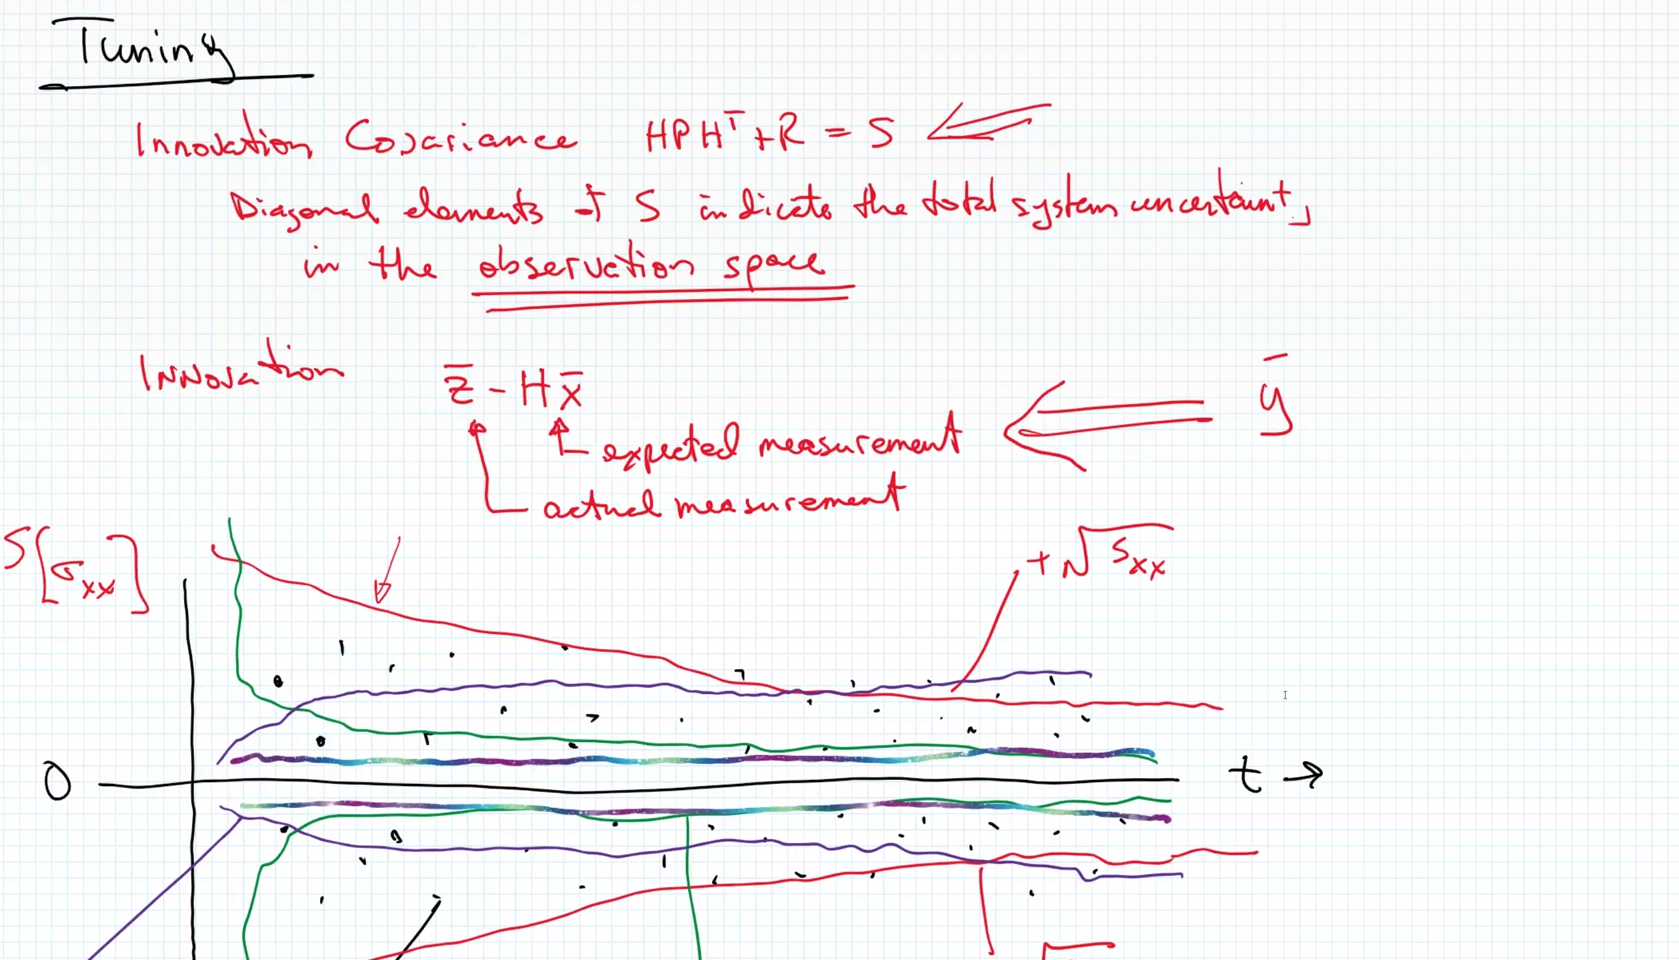 Tuning
Innovation Covariance HPHᵀ+R = S
Diagonal elements of S indicate the total system uncertainty
in the observation space
Innovation z̄ - Hx̄ ȳ
expected measurement
actual measurement
S[σxx] +√Sxx
0 t →